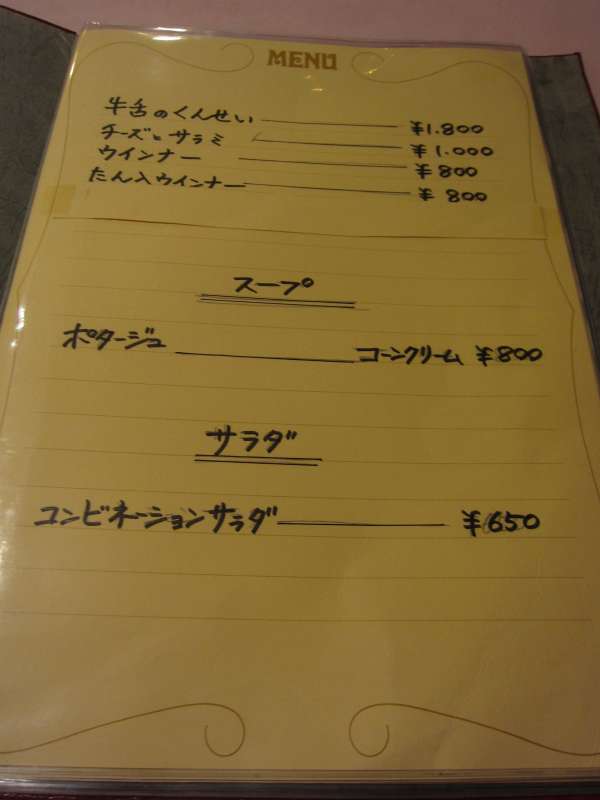 MENU
牛舌のくんせい ¥1.800
チーズとサラミ ¥1.000
ウインナー ¥800
たん入ウインナー ¥800
スープ
ポタージュ コーンクリーム ¥800
サラダ
コンビネーションサラダ ¥650